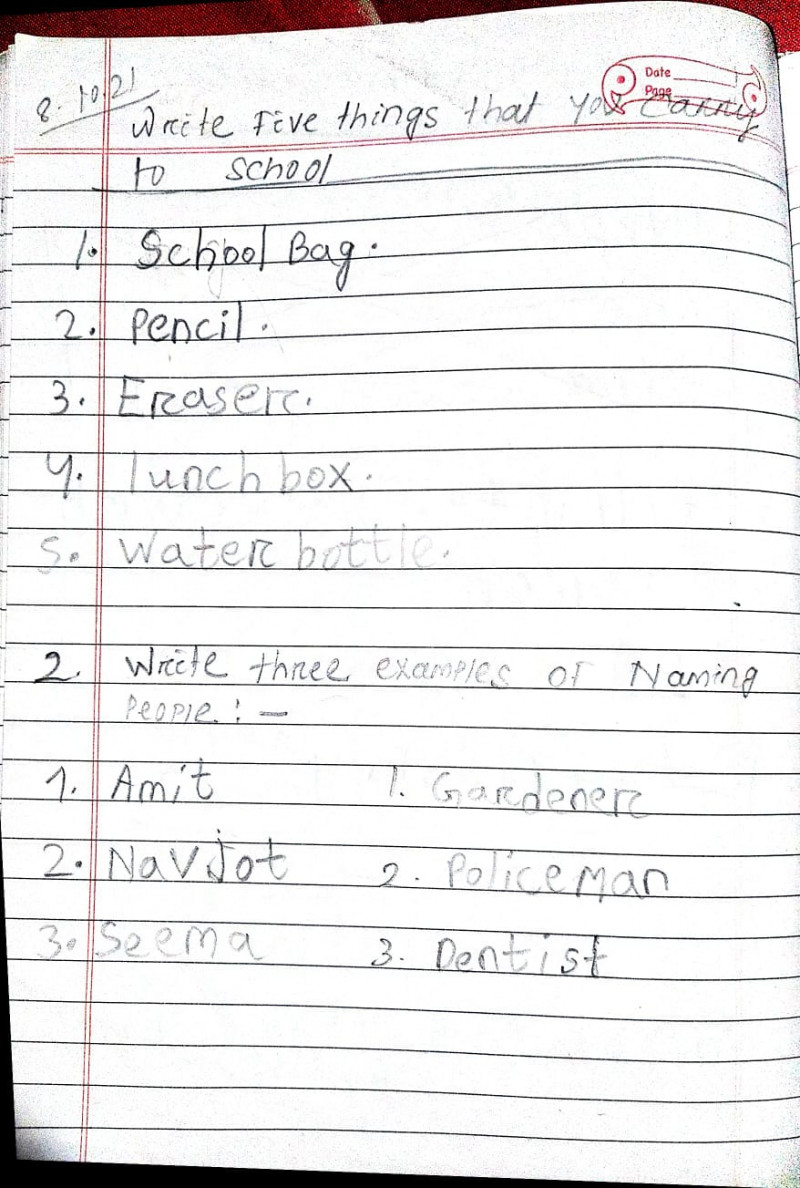 Date
Page
8.10.21
Write Five things that you carry
to school
1. School Bag.
2. Pencil.
3. Eraser.
4. lunch box.
5. Water bottle.
2. Write three examples of Naming
People : -
1. Amit 1. Gardener
2. Navjot 2. Policeman
3. Seema 3. Dentist